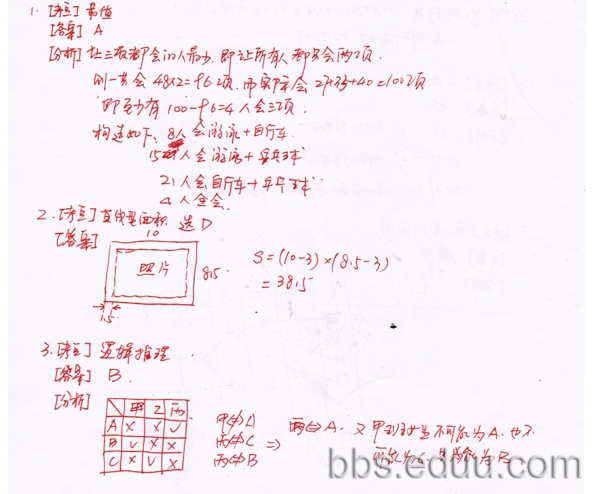 1. [考点] 最值
[答案] A
[分析] 让三项都会的人最少, 即让所有人都只会两项.
则一共会 48×2=96项. 而实际会 27+33+40=100项
即至少有 100-96=4 人会三项.
构造如下: 8人会游泳+自行车.
15人会游泳+乒乓球
21人会自行车+乒乓球
4人全会.
2. [考点] 直线型面积 选D
[答案]
10
照片
8.5
1.5
S=(10-3)×(8.5-3)
=38.5
3. [考点] 逻辑推理
[答案] B
[分析]
甲 乙 丙
A × × √
B √ × ×
C × √ ×
甲 A
丙 C
丙 B
⇒ 丙⇔A. 又甲 不可能为A. 也不
可能为C 为B
bbs.eduu.com